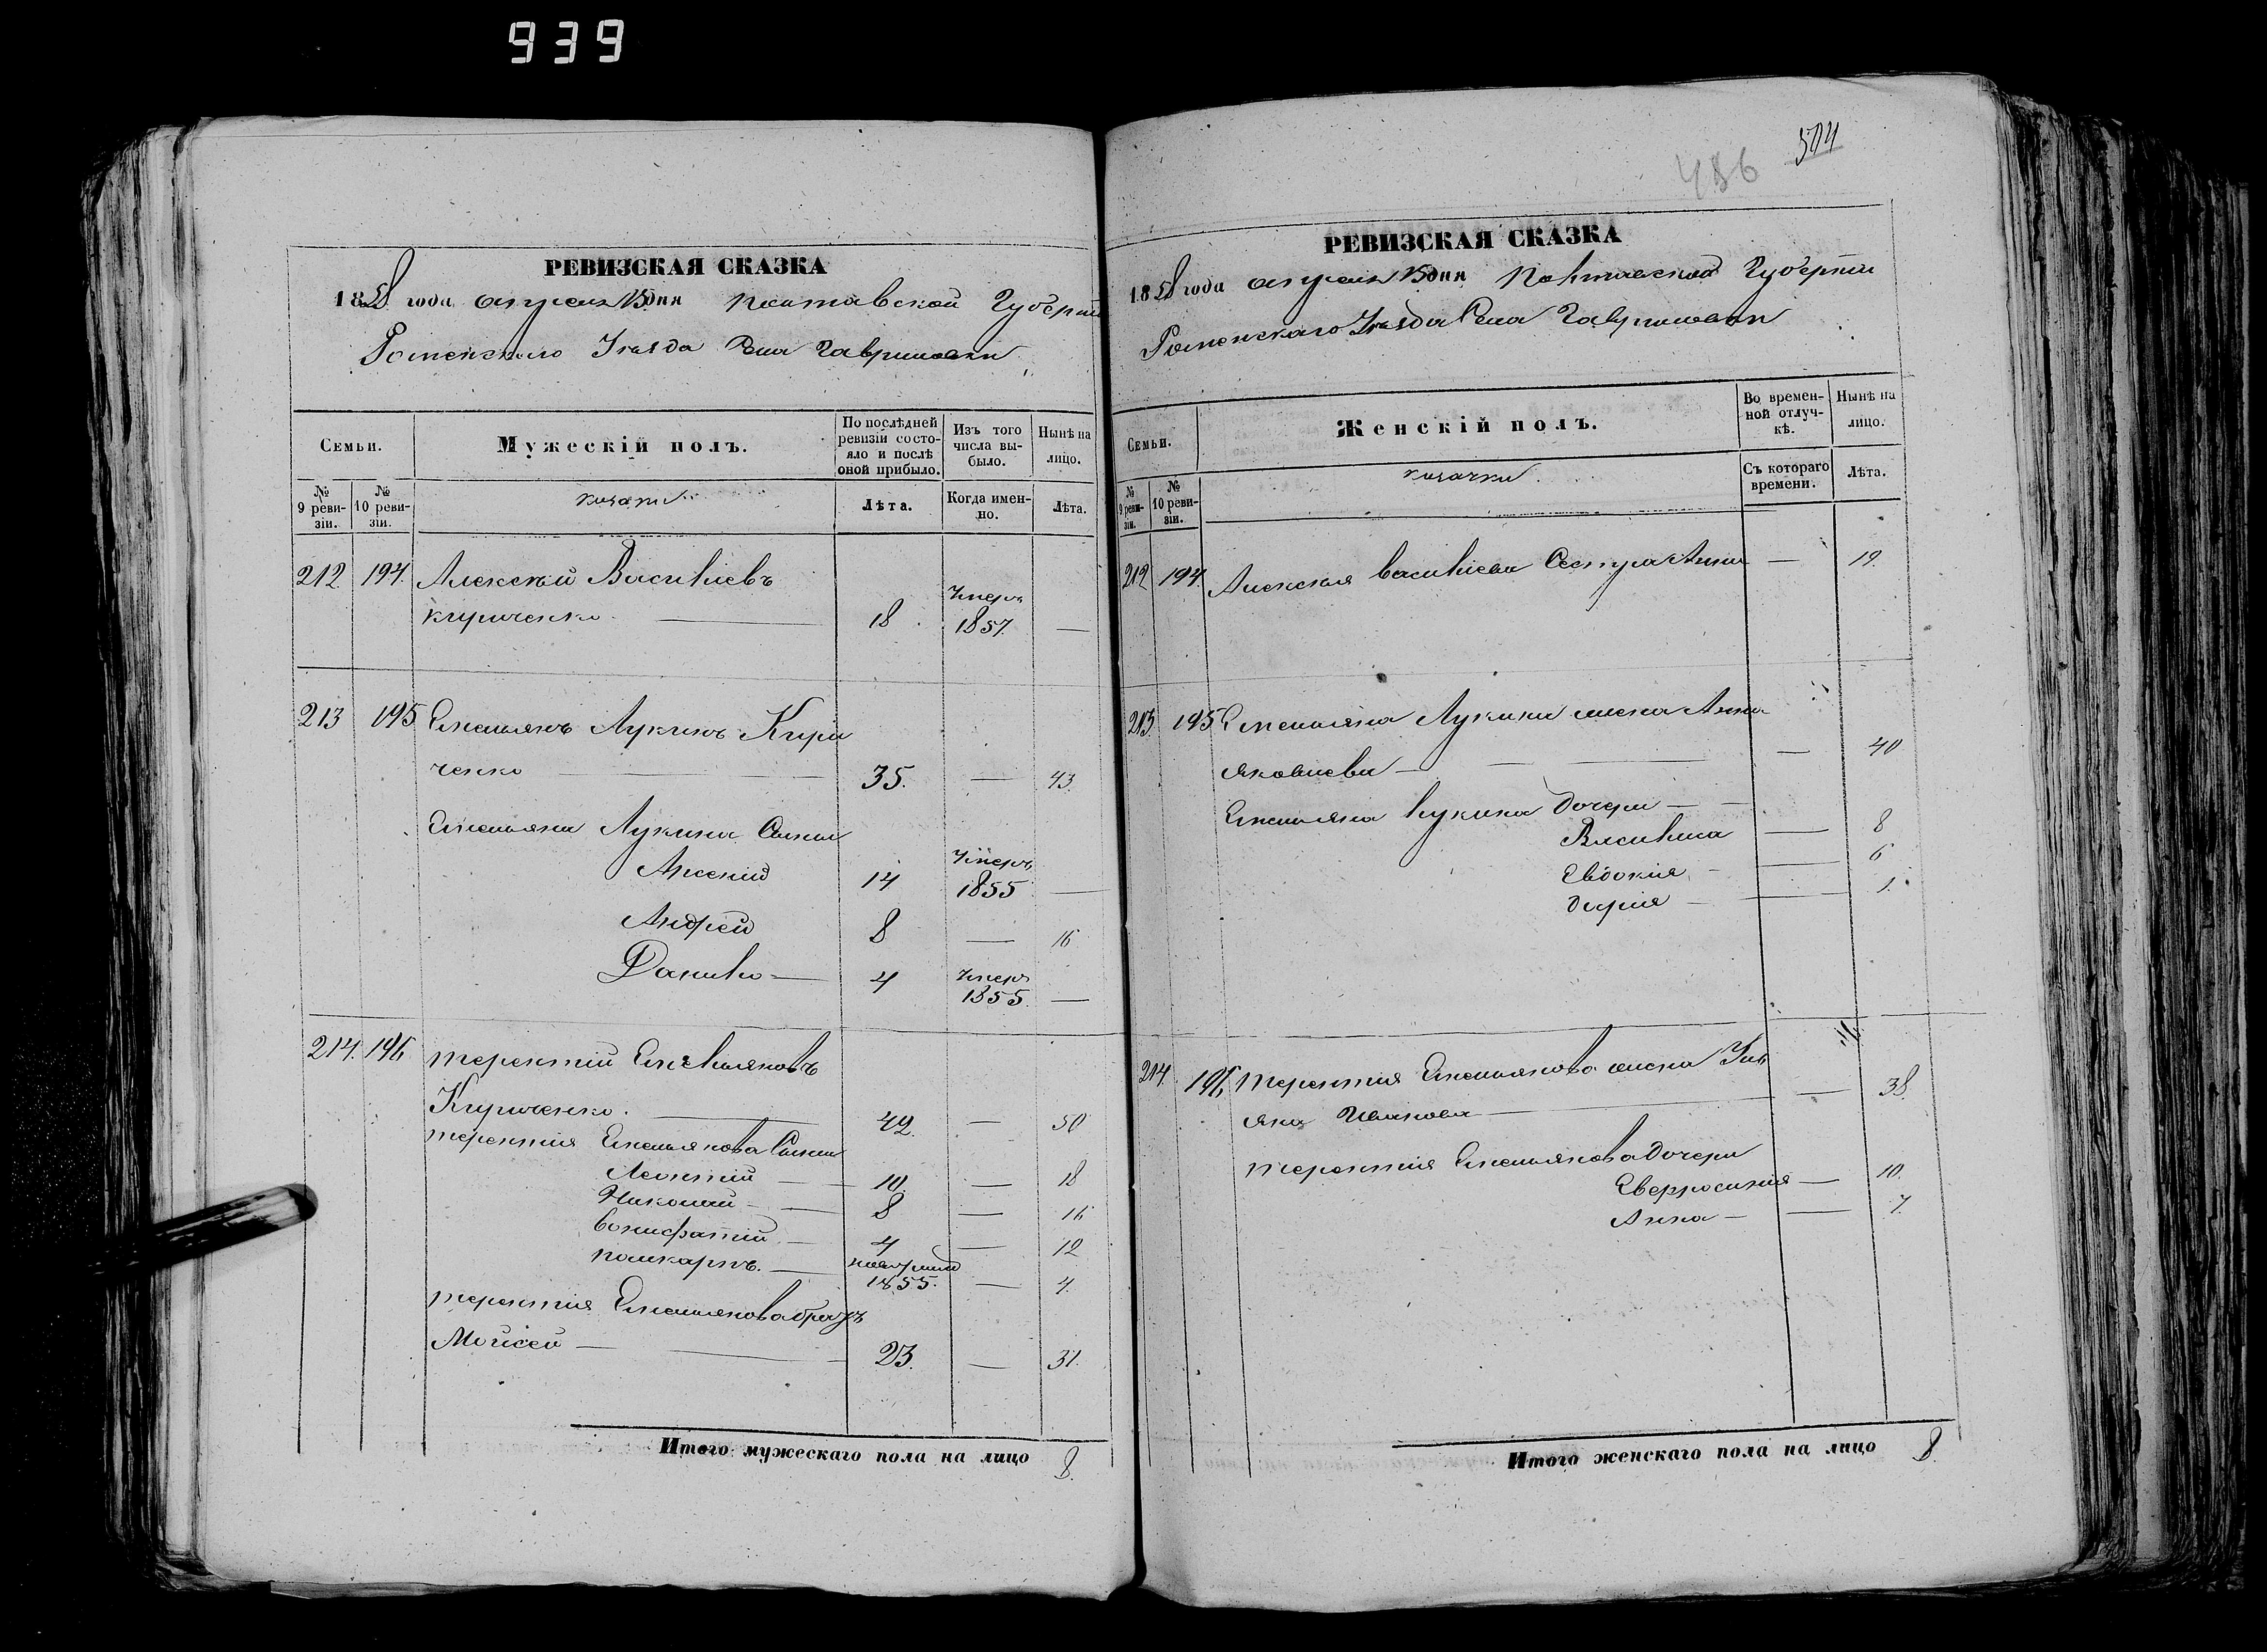 939
РЕВИЗСКАЯ СКАЗКА
1858 года апреля 15 дня Полтавской Губерніи
Роменскаго Уезда Села Гавришовки
Семьи.
Мужескій полъ.
По послѣдней ревизіи состояло и послѣ оной прибыло.
Изъ того числа выбыло.
Нынѣ на лицо.
№ 9 ревизіи.
№ 10 ревизіи.
козаки
Лѣта.
Когда именно.
Лѣта.
212 194 Алексѣй Василіевъ
Кириченко — 18 умеръ 1857. —
213 195 Емельянъ Лукинъ Кири
ченко — 35. — 43.
Емельяна Лукина Сыны
14 умеръ 1855 —
Андрей 8 — 16
Данило — 4 умеръ 1855. —
214. 196 Терентій Емельяновъ
Кириченко. — 42. — 50
Терентія Емельянова Сыны
Леонтій — 10 — 18
Николай — 8 — 16
Бонифатій — 4 — 12
Поликарпъ. — 1855. — 4.
Терентія Емельянова братъ
Мойсей — 23. — 31.
Итого мужескаго пола на лицо 8.
486 504
РЕВИЗСКАЯ СКАЗКА
1858 года апреля 15 дня Полтавской Губерніи
Роменскаго Уезда Села Гавришовки
Семьи.
Женскій полъ.
Во временной отлучкѣ.
Нынѣ на лицо.
№ 9 ревизіи.
№ 10 ревизіи.
козачки
Съ котораго времени.
Лѣта.
212 194 Алексѣя Василіева Сестра Анна — 19.
213. 195 Емельяна Лукина жена Анна
Яковлева — — 40
Емельяна Лукина дочери —
Василиса — 8
Евдокія — 6
Дарія — 1.
214. 196 Терентія Емельянова жена Уль
яна Иванова — 38.
Терентія Емельянова дочери
Евфросинія — 10.
Анна — 7.
Итого женскаго пола на лицо 8.